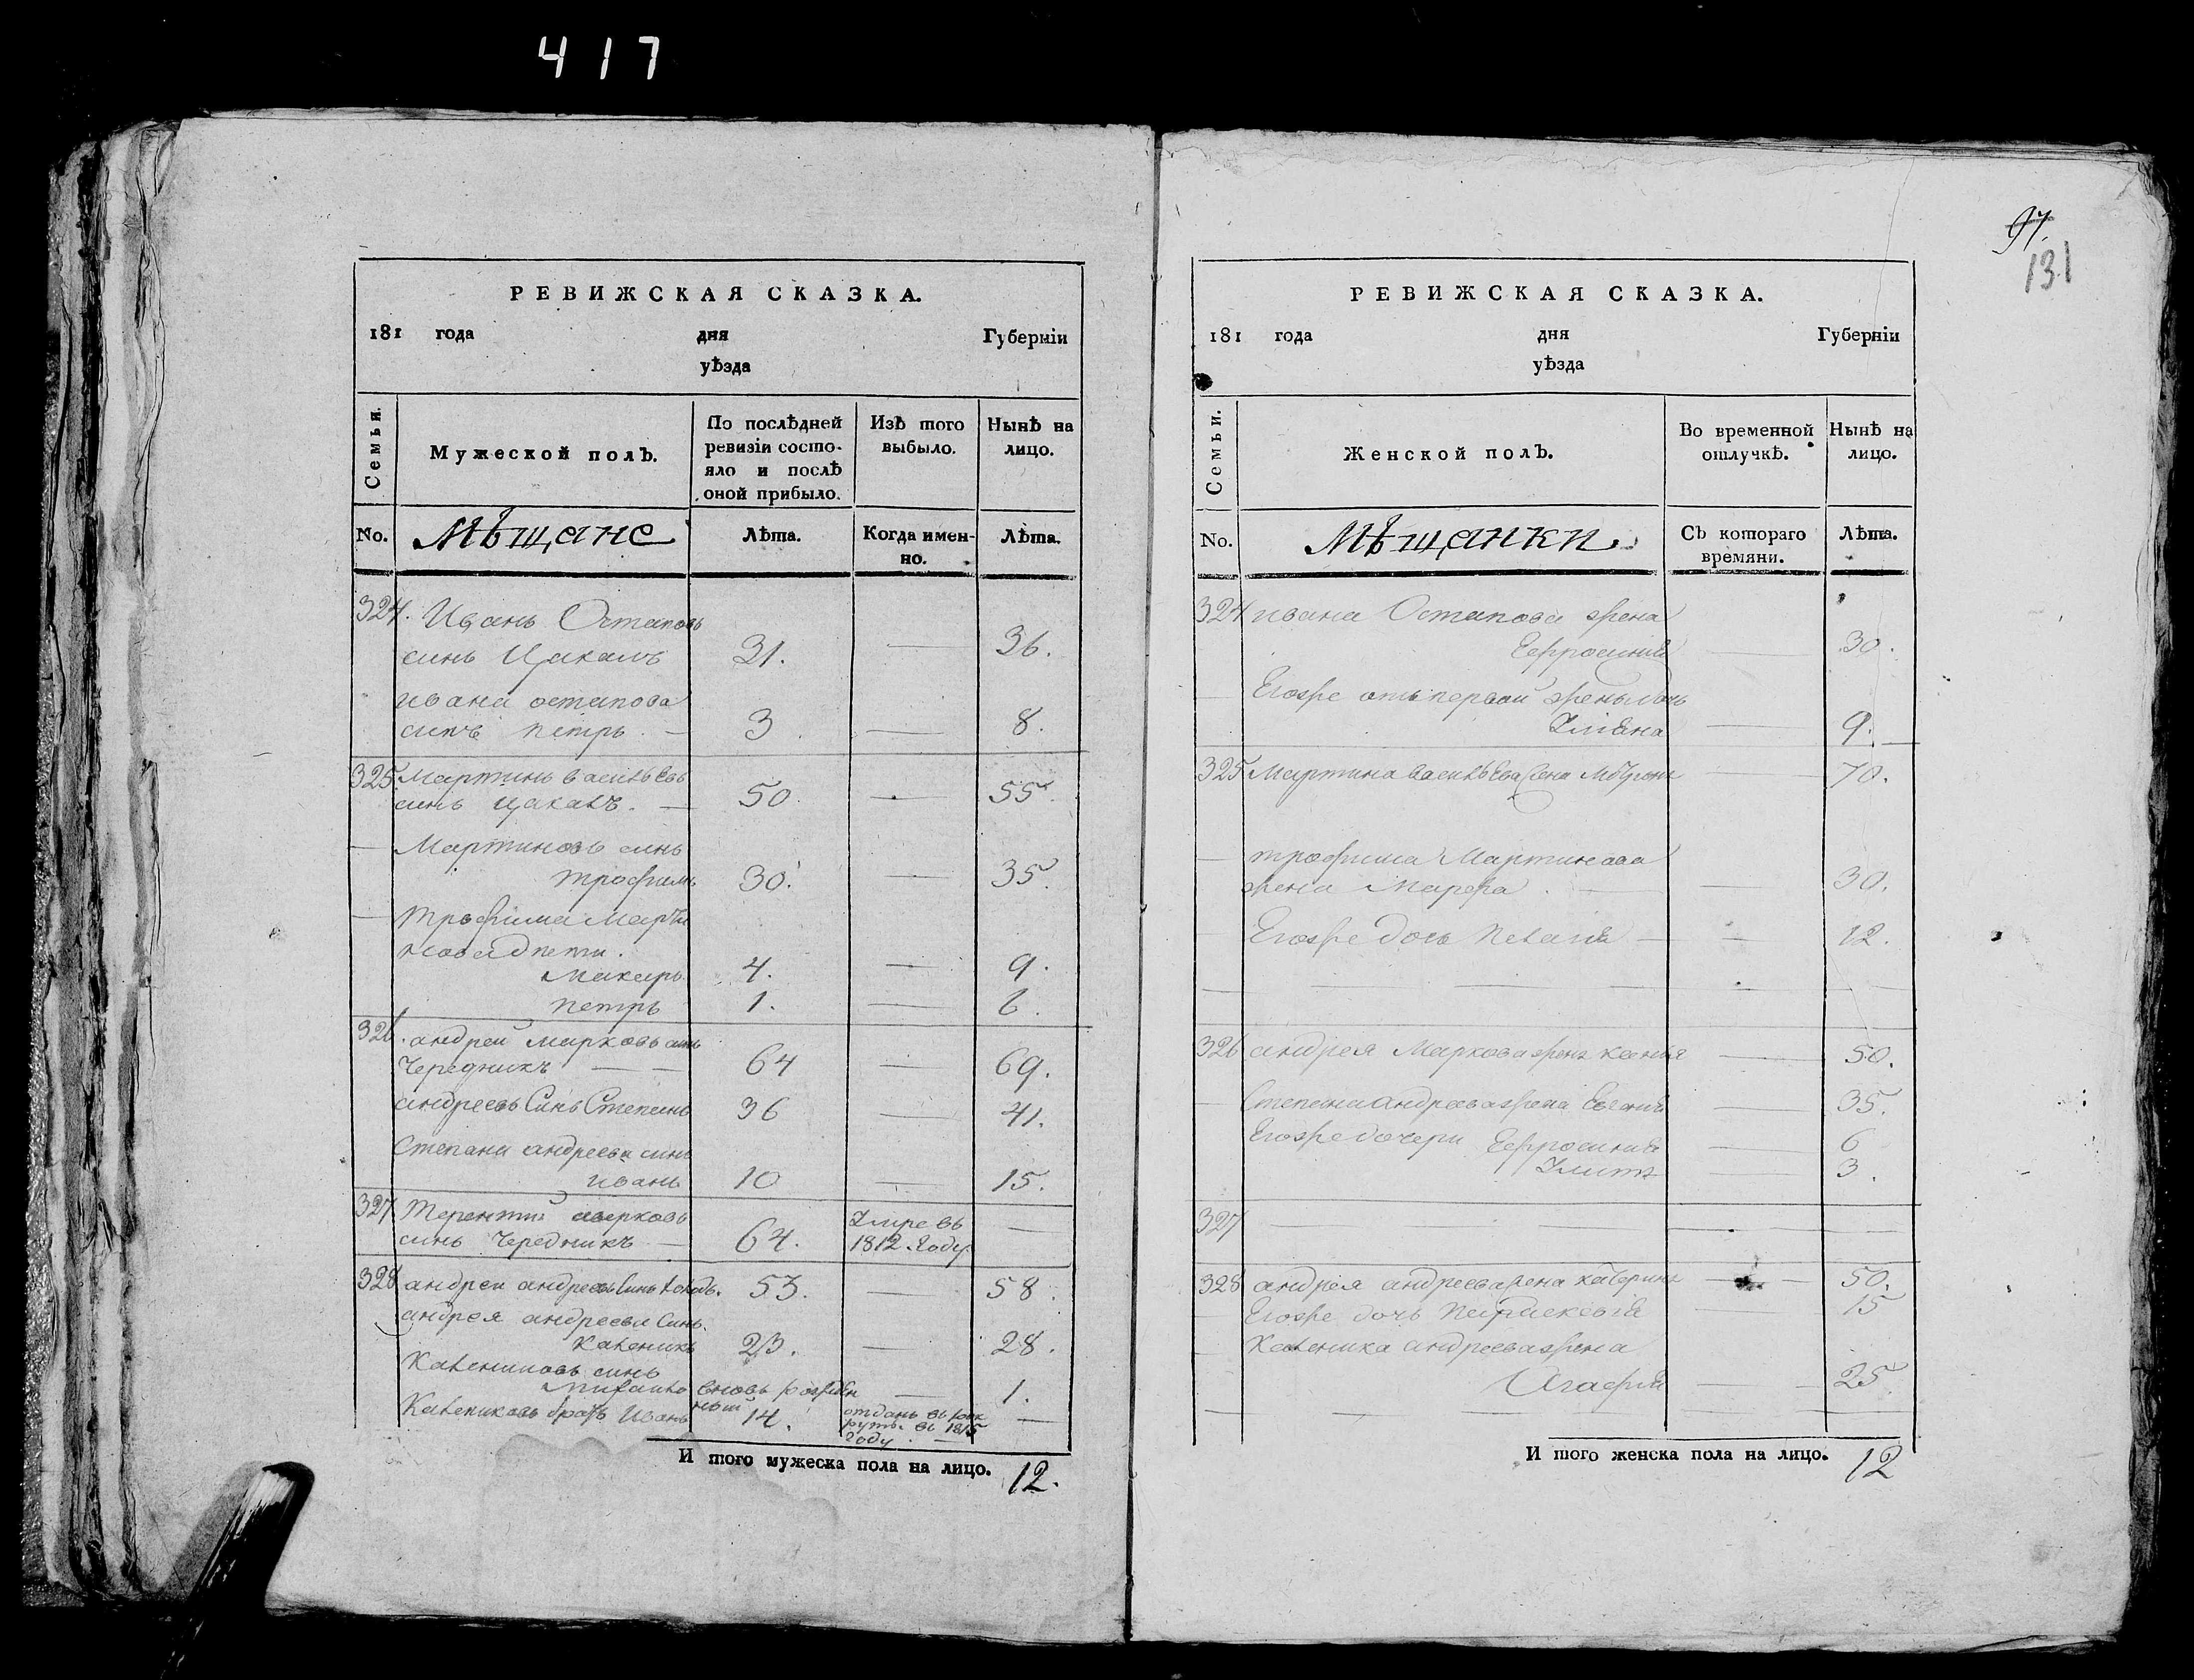 417
РЕВИЖСКАЯ СКАЗКА.
181 года дня Губерніи
уѣзда
Семьи.
Мужеской полЪ.
По послѣдней ревизіи состо-
яло и послѣ оной прибыло.
ИзЪ того выбыло.
НынѢ на лицо.
No.
Мѣщане
Лѣта.
Когда имен-
но.
Лѣта.
324. Иванъ Остаповъ
синъ Цакалъ 31. — 36.
ивана остапова
синъ петръ — 3 — 8.
325 Мартинъ василѣвъ
синъ Цакалъ. — 50. — 55.
— Мартиновъ синъ
трофимъ 30. — 35.
— трофима Марти
нова дѣти.
Макаръ 4. — 9.
петръ 1. — 6.
326. андрей Марковъ синъ
Чередникъ — 64 — 69.
андреевъ Синъ Степанъ 36 — 41.
Степана андреева синъ
иванъ 10 — 15.
327 Терентий аверковъ
синъ Чередникъ — 64. Умре въ
1812. Году. —
328 андрей андреевъ Синъ 53. — 58.
андрея андреева Синъ.
Каленикъ 23. — 28.
Калениковъ синъ
Михаило вновь рожден
ный — 1.
Калениковъ братъ Иванъ 14. отданъ въ рек
руты въ 1815
Году. —
И того мужеска пола на лицо. 12.
97.
131
РЕВИЖСКАЯ СКАЗКА.
181 года дня Губерніи
уѣзда
Семьи.
Женской полЪ.
Во временной отлучкѢ.
НынѢ на лицо.
No.
Мѣщанки
СЪ котораго
времяни.
Лѣта.
324 ивана Остапова жена
Ефросиния — 30.
— Егожъ отъ первой жены дочь
Улияна — 9.
325 Мартина василѣва жена — 70.
— трофима Мартинова
жена Марфа. — 30.
Егоже дочь пелагия — — 12.
326 андрея Маркова жена — 50.
— Степана андреева жена — 35.
Егоже дочери Ефросиния — 6
Улита — 3.
327 — — —
328 андрея андреева жена катерина — 50.
— Егоже дочь параскевия — 15
— Каленика андреева жена
Агафия — 25.
И того женска пола на лицо. 12